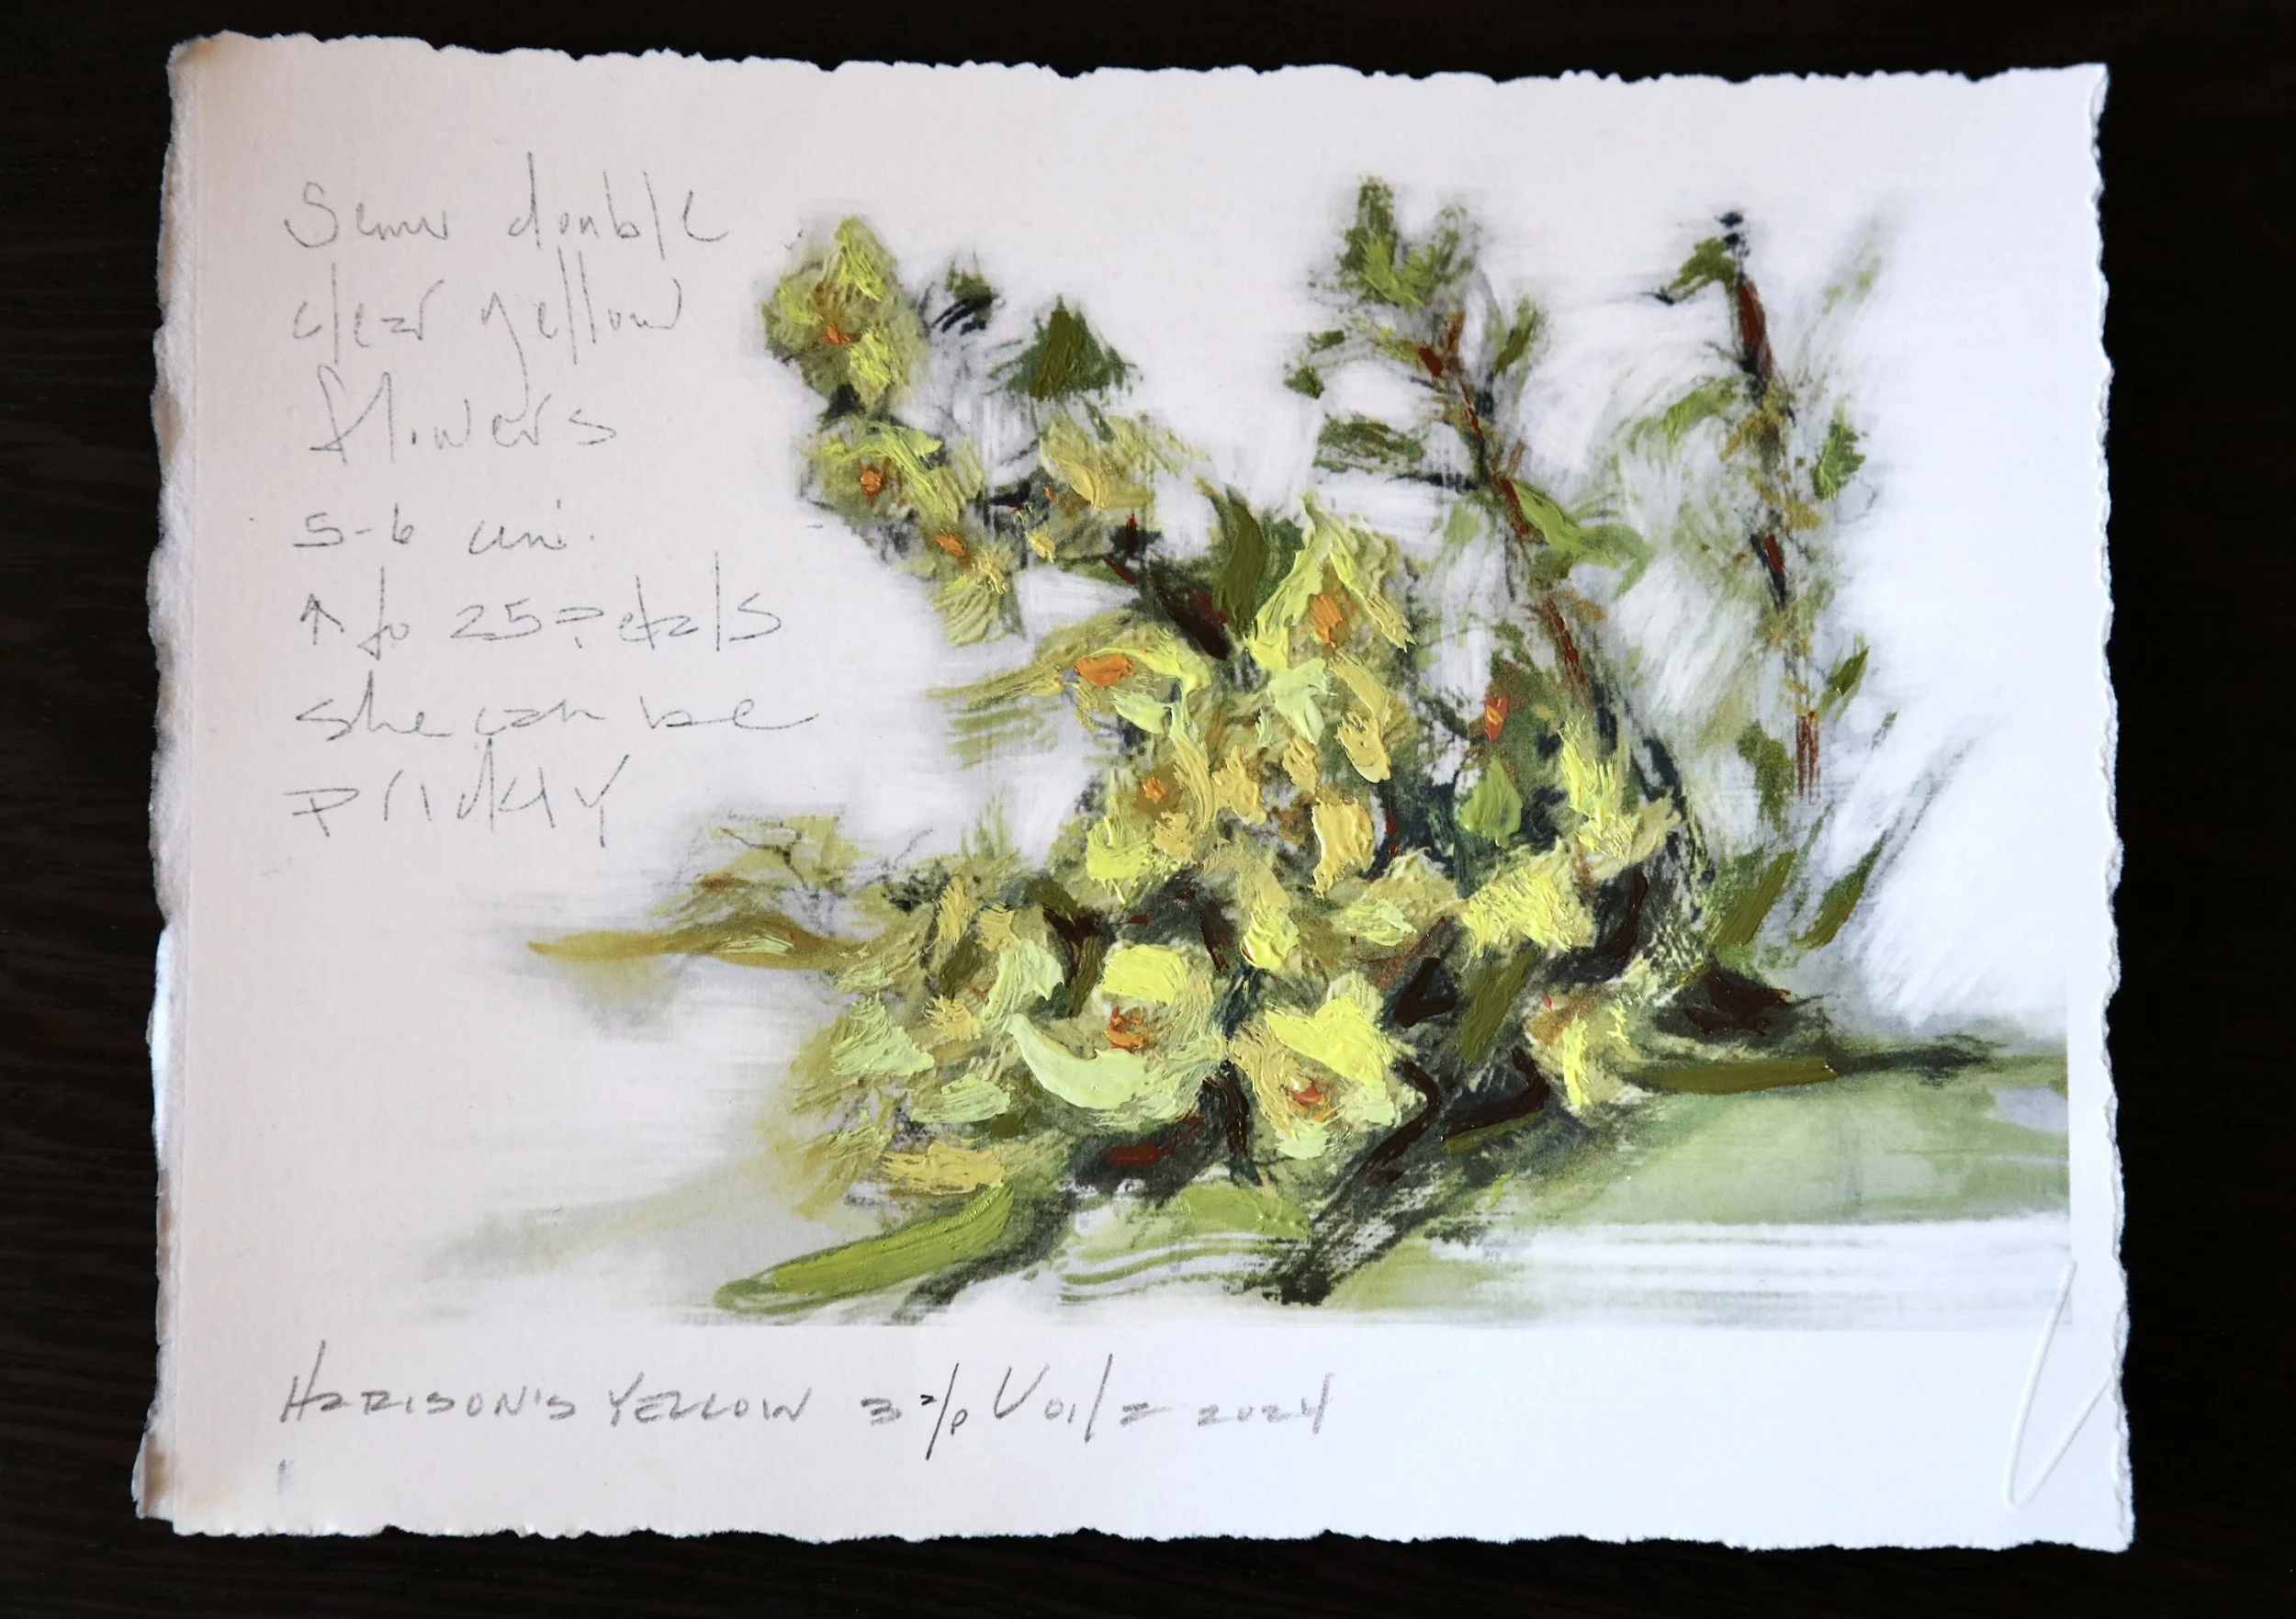 Semi double
clear yellow
flowers
5-6 cm.
↑ to 25 Petals
she can be
prickly
HARISON'S YELLOW 3 2024